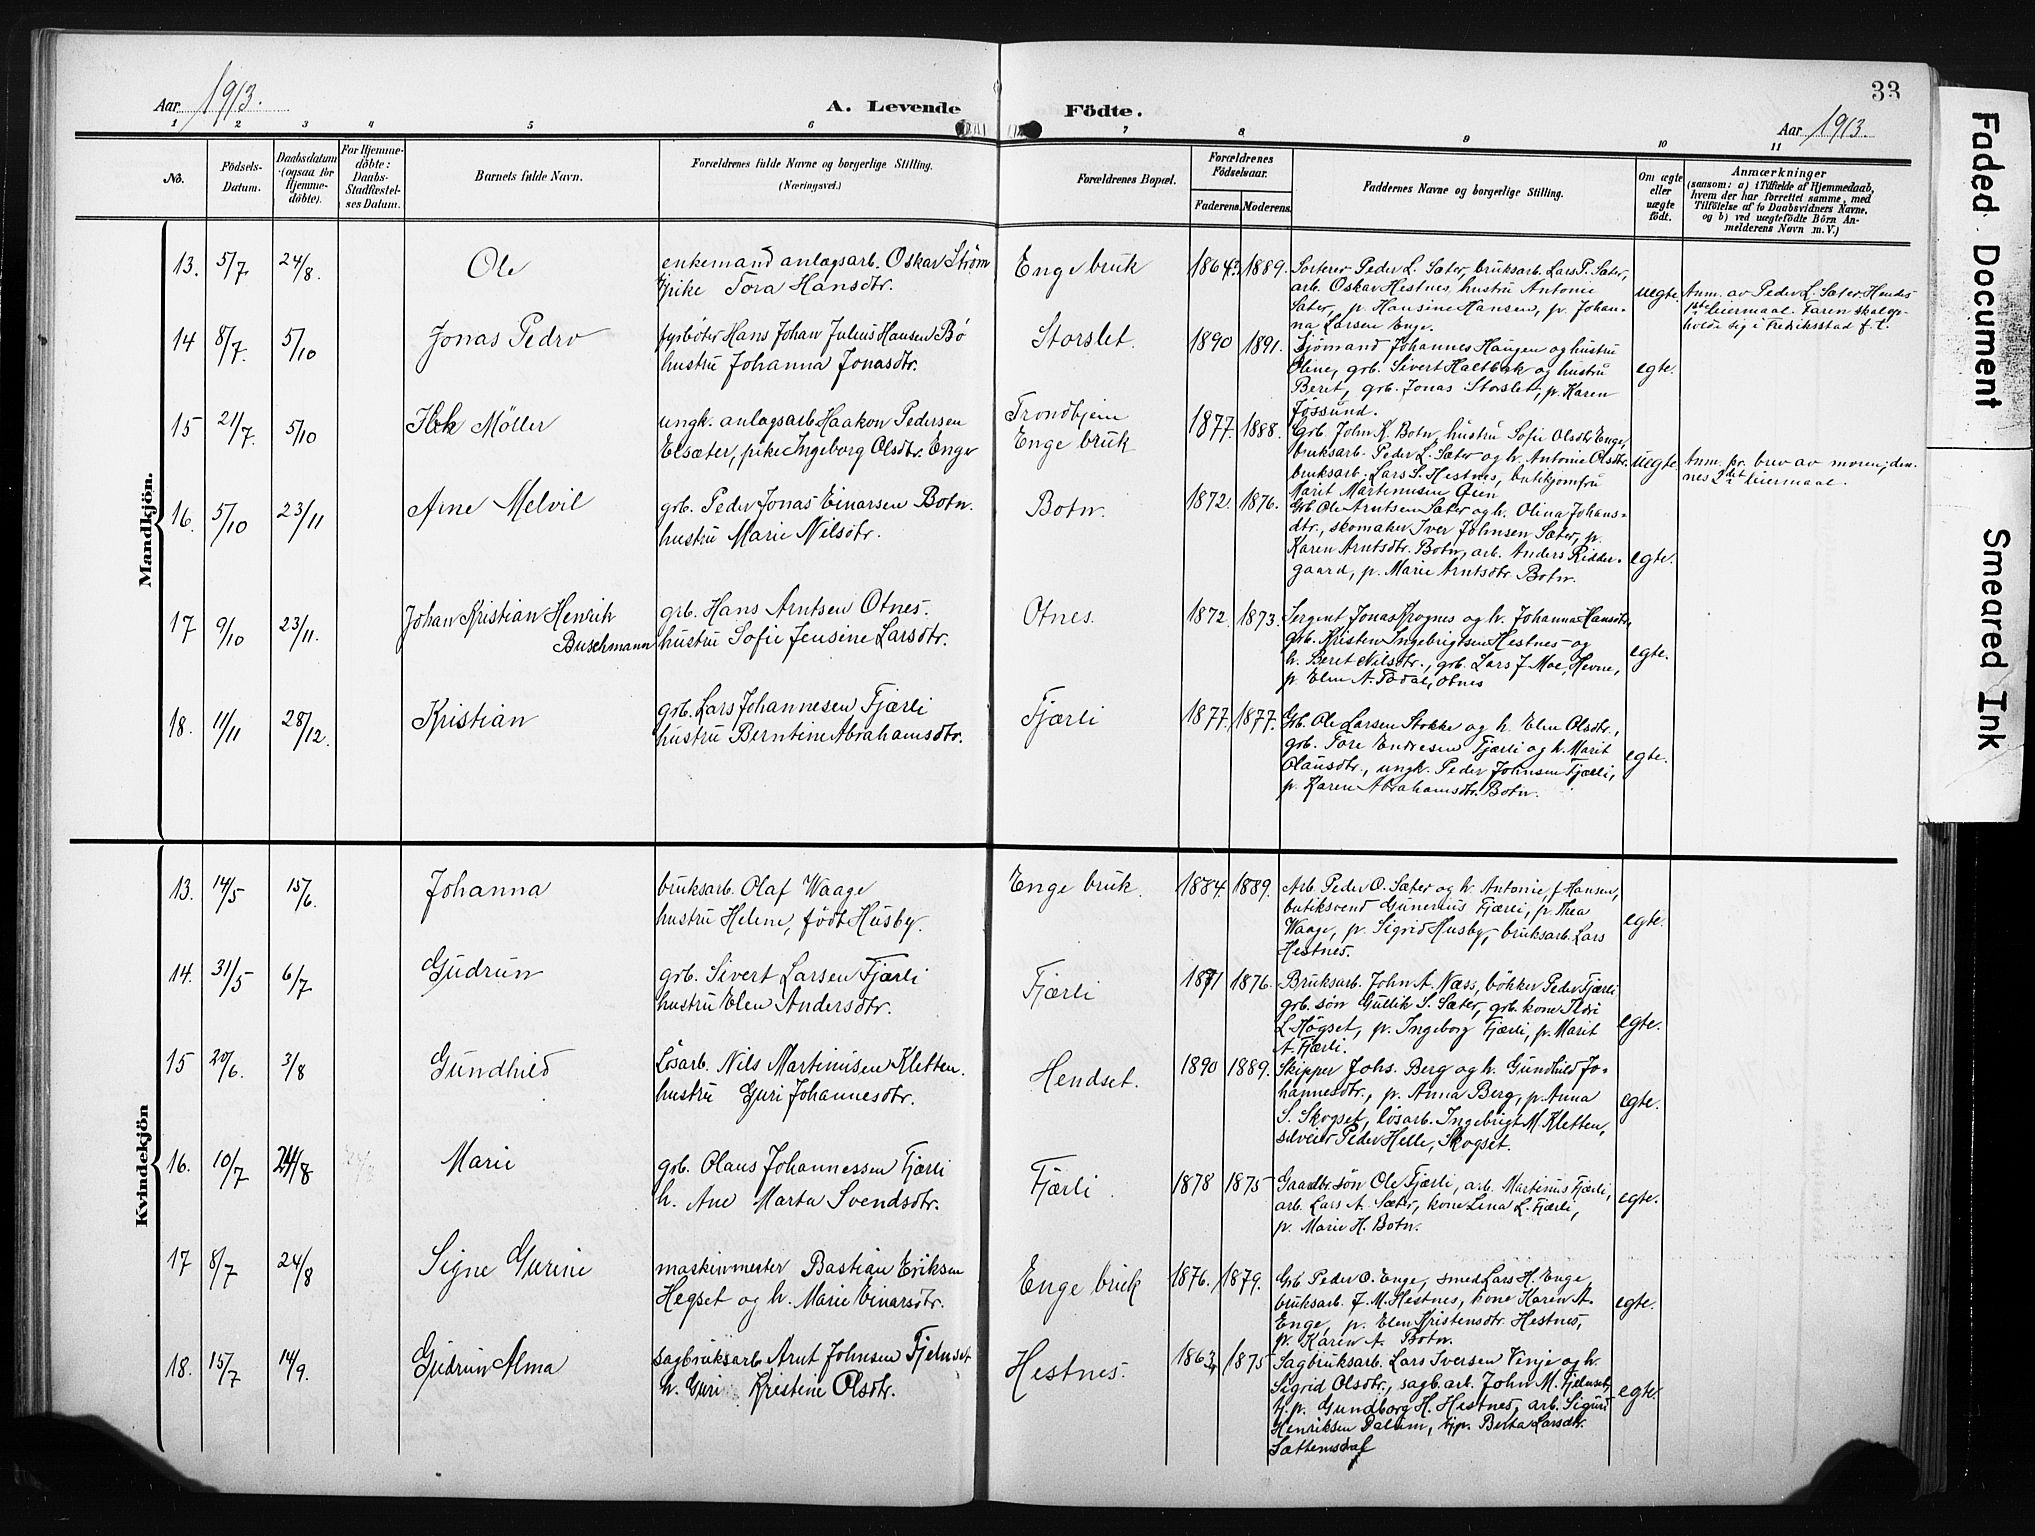 Aar 1913.
A. Levende Födte.
33
Aar 1913.
1 2 3 4 5 6 7 8 9 10 11
No.
Födsels-Datum.
Daabsdatum (ogsaa for Hjemmedöbte).
For Hjemmedöbte: Daabs-Stadfæstelses Datum.
Barnets fulde Navn.
Forældrenes fulde Navne og borgerlige Stilling.
(Næringsvei.)
Forældrenes Bopæl.
Forældrenes Födselsaar.
Faderens. Moderens.
Faddernes Navne og borgerlige Stilling.
Om ægte eller uægte födt.
Anmærkninger
(saasom: a) i Tilfælde af Hjemmedaab,
hvem der har forrettet samme, med
Tilföielse af to Daabsvidners Navne,
og b) ved uægtefödte Börn Anmelderens Navn m. V.)
Mandkjön.
13. 5/7 24/8. Ole
enkemand anlægsarb. Oskar Ström
pike Tora Hansdtr.
Enge bruk 1864? 1889.
Sorterer Peder L. Sæter, bruksarb. Lars P. Sæter,
arb. Oskar Hestnes, hustru Antonie
Sæter, p. Hansine Hansen, p. Johanna
Larsen Enge.
uegte
Anm. av Peder L. Sæter. Hendes
leiermaal. Faren skal opholde
sig i Fredriksstad f. t.
14 8/7. 5/10 Jonas Pedro
fyrbøter Hans Johan Julius Hansen Bø
hustru Johanna Jonasdtr.
Storslet. 1890 1891.
Sjömand Johannes Haugen og hustru
Oline, grb. Sivert Haltbak og hustru
Beret, grb. Jonas Storslet, p. Karen
Jössund.
egte.
15 21/7. 5/10 Møller
ungk. anlægsarb Haakon Pedersen
Elsæter, pike Ingeborg Olsdtr. Enge
Trondhjem
Enge bruk
1877. 1888.
Grb. John K. Botn, hustru Sofie Olsdtr Enge,
bruksarb. Peder L. Sæter og h. Antonie Olsdtr.
bruksarb. Lars S. Hestnes, butikjomfru
Marit Martinusen
uegte
Anm. pr. brev av moren; dennes
2det leiermaal.
16. 5/10 23/11 Arne Melvil
grb. Peder Jonas Einarsen Botn.
hustru Marie Nilsdtr.
Botn. 1872. 1876.
Grb Ole Arntsen Sæter og h. Olina Johansdtr.,
skomaker Iver Johnsen Sæter, p.
Karen Arntsdtr. Botn, arb. Anders Riddergaard,
p. Marie Arntsdtr Botn.
egte.
17 9/10 23/11. Johan Kristian Henrik
Buschmann
grb. Hans Arntsen Otnes.
hustru Sofie Jensine Larsdtr.
Otnes. 1872. 1873.
Sergent Jonas Krognes og h. Johanna Hansdtr,
grb. Kristen Ingebrigtsen Hestnes og
h. Beret Nilsdtr., grb. Lars J Moe, Hevne,
p. Elen A. Todal, Otnes
egte.
18. 11/11 28/12. Kristian
grb. Lars Johannesen Fjærli
hustru Berntine Abrahamsdtr.
Fjærli 1877. 1877.
Grb. Ole Larsen Stokke og h. Elen Olsdtr.,
grb. Tore Endresen Fjærli og h. Marit
Olausdtr., ungk. Peder Johnsen Fjærli,
p. Karen Abrahamsdtr. Botn.
egte.
Kvindekjön
13. 14/5 15/6. Johanna
bruksarb. Olaf Waage
hustru Helene, född Husby.
Enge bruk. 1884. 1889.
Arb. Peder O. Sæter og h. Antonie, f. Hansen,
butiksvend Gunerius Fjærli, p. Thea
Waage, p. Sigrid Husby, bruksarb. Lars
Hestnes.
egte.
14. 31/5 6/7 Gudrun
grb. Sivert Larsen Fjærli
hustru Elen Andersdtr.
Fjærli 1871 1876.
Bruksarb. John A. Næss, bökker Peder Fjærli
grb. søn Gullik S. Sæter, grb. kone
L Høgset, p. Ingeborg Fjærli, p. Marit
A. Fjærli.
egte.
15 20/6. 3/8 Gundhild
Løsarb. Nils Martinusen Kletten.
hustru Guri Johannesdtr.
Hendset. 1890 1889.
Skipper Johs. Berg og h. Gundhild Johannesdtr.,
p. Anna Berg, p. Anna
S. Skogset, løsarb. Ingebrigt M. Kletten,
Peder Helle, Skogset.
egte.
16. 10/7 24/8 Marie
grb. Olaus Johannessen Fjærli
h. Ane Marta Svendsdtr.
Fjærli. 1878 1875
Gaardbr.søn Ole Fjærli, arb. Martinus Fjærli,
arb. Lars A. Sæter, kone Lina L. Fjærli,
p. Marie H. Botn.
egte.
17 8/7 24/8 Signe Gurine
maskinmester Bastian Eriksen
Hegset og h. Marie Einarsdtr.
Enge bruk 1876. 1879.
Grb Peder O. Enge, smed Lars H. Enge,
bruksarb. J. M. Hestnes, kone Karen A.
Enge, p. Elen Kristensdtr. Hestnes,
p. Karen A. Botn.
egte.
18. 15/7 14/9. Gudrun Alma
sagbruksarb Arnt Johnsen Fjelnset
h. Guri Kristine Olsdtr.
Hestnes. 1863 1875
Sagbruksarb. Lars Iversen Vinje og h.
Sigrid Olsdtr., sagb.arb. John M. Fjelnset,
p. Gundborg H. Hestnes, arb. Sigurd
Henriksen Dalum, p. Berta Larsdtr.
egte.
Faded Document
Smeared Ink